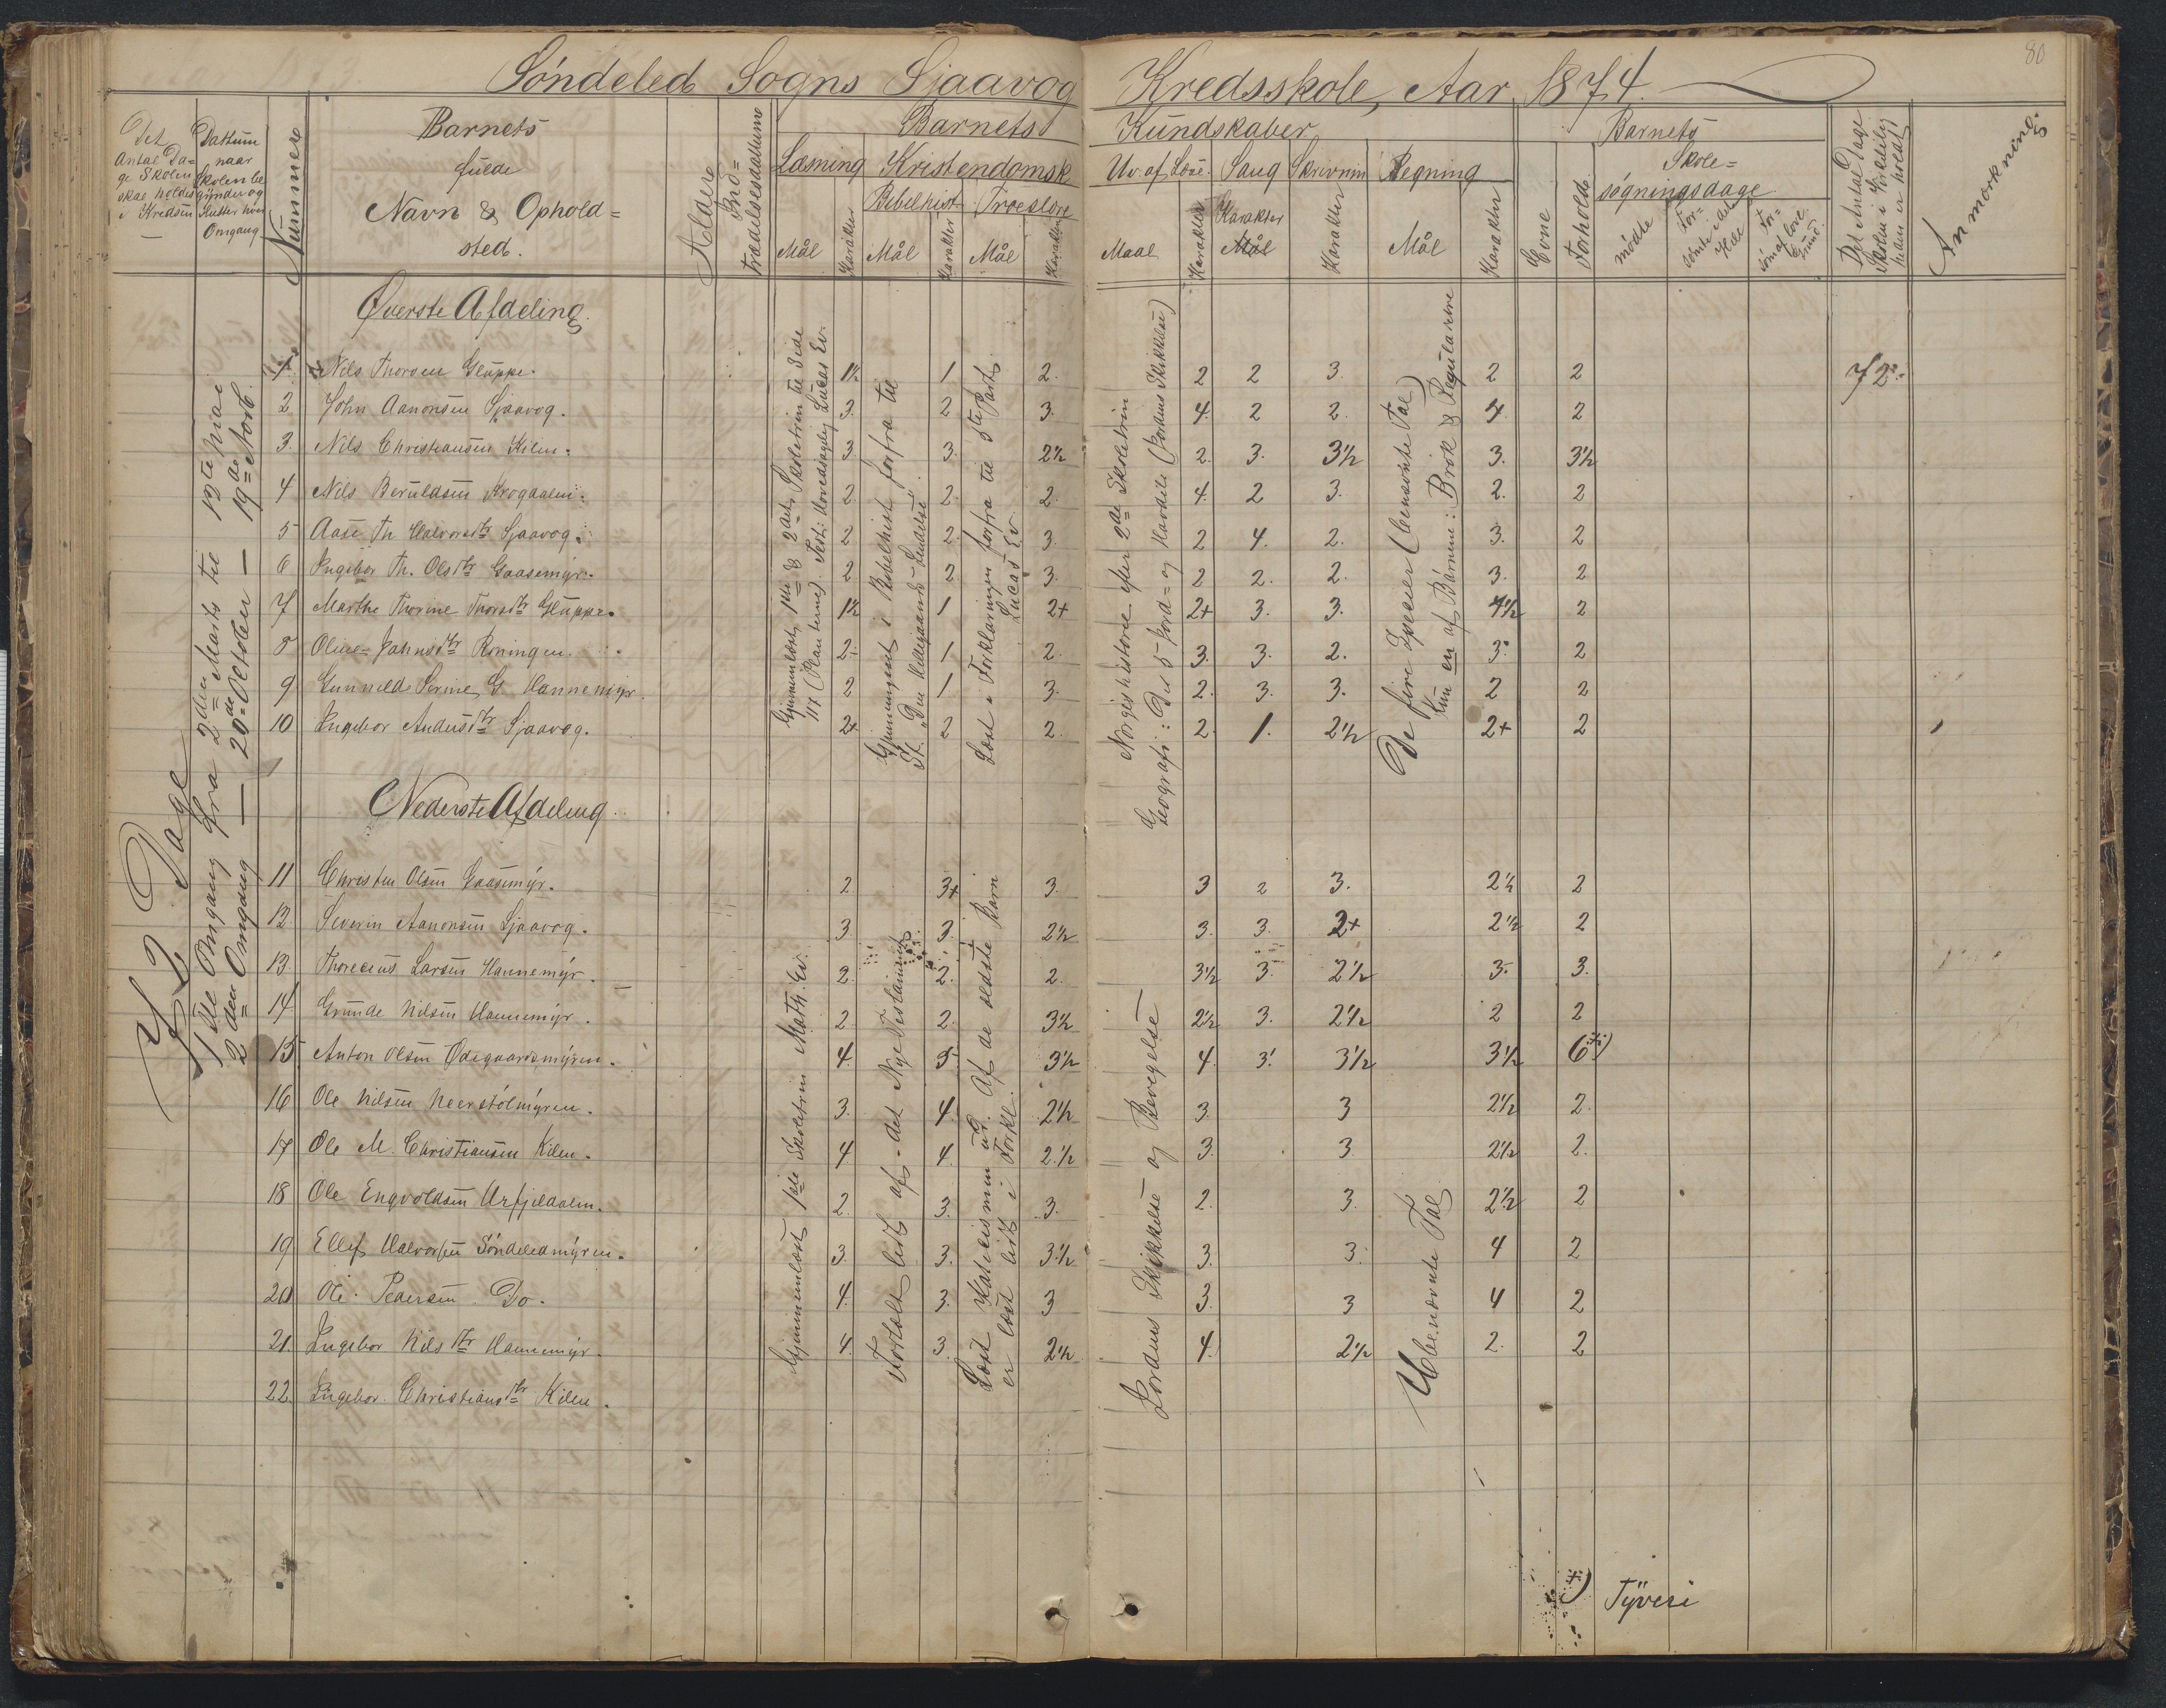 80
Söndeled Sogns Sjaavog Kredsskole, Aar 1874.
Det Antal Dage Skolen skal holdes i Kredsen
Dattum naar Skolen begÿnder og slutter hver Omgang
Nummer
Barnets fulde Navn & Opholdsted.
Alder
Indtrædelsesdatum
Barnets Kundskaber
Læsning Mål Karakter
Kristendomsk
Bibelhist Mål Karakter
Troeslære Mål Karakter
Udv. af Læse. Maal Karakter
Sang Karakter Mål
Skrivnin Karakter
Regning Mål Karakter
Evne
Forhold
Barnets Skolesøgningsdage
mødte
Forsømte i det Hele
Forsömt af lovl. Grund.
Det Antal Dage Skolen i Virkelighedn er holdt
Anmærkning.
72 Dage
1ste Omgang fra 2den Marts til 13te Mai
2den Omgang — 20de October — 19de Novb.
Øverste Afdeling.
1. Nils Thorsen Gluppe. 1½ 1 2. 2 2 3. 2 2 72
2 John Aanonsen Sjaavog. 3. 2 3. 4. 2 2. 4. 2
3. Nils Christiansen Kilen. 3. 3. 2½ 2. 3. 3½ 3. 3½
4 Nils Beruldsen Krogdalen. 2. 2. 2. 4. 2 3. 2. 2
5 Aase Th Halvorsdtr Sjaavog. 2 2. 3. 2 4. 2. 3. 2
6 Ingebor Th. Olsdtr Gaasemÿr. 2 2 3. 2 2. 2. 3. 2
7 Marthe Thorine Thorsdtr Gluppe. 1½ 1 2+ 2+ 3. 3. 4½ 2
8 Oline Jahnsdtr Röningen. 2. 1 2. 3. 3. 2. 3. 2
9 Gunnild Serine G. Hannemÿr. 2 1 3. 2. 3. 3. 2 2
10 Ingebor Andersdtr Sjaavog. 2+ 2 2. 2. 1. 2½ 2+ 2
Gjennemlæst 1ste & 2det Skoletrin til Side 117 (Planterne) Test: Hovedsagelig Lucas Ev.
Gjennemgaaet i Bibelhist forfra til St. "Den Helligaands Sendelse".
Læst i Forklaringen forfra til 5te Part. Lucas Ev
Norgeshistorie efter 2de Skoletrin
Geografi: De 5 Jord= og Havdele (Jordens Skikkelse)
De fire Specier (benævnte Tal)
Kun en af Börnene: Brök & Regulatrie
Nederste Afdeling
11 Christen Olsen Gaasemÿr. 2. 3+ 3. 3 2 3. 2½ 2
12 Severin Aanonsen Sjaavog. 3 3. 2½ 3. 3. 2+ 2½ 2
13. Thorecius Larsen Hannemÿr. 2. 2. 2. 3½ 3. 2½ 3. 3.
14. Grunde Nilsen Hannemÿr. 2. 2. 3½ 2½ 3. 2½ 2 2
15 Anton Olsen Ødegaardsmÿren. 4. 5. 3½ 4. 3. 3½ 3½ 6 +)
16 Ole Nilsen Neerstölmÿren. 3. 4. 2½ 3. 3 2½ 2.
17 Ole M. Christiansen Kilen. 4 4. 2.½ 3. 3 2½ 2.
18 Ole Engvoldsen Urfjeldalen. 2. 3. 3. 2. 3. 2½ 2
19 Ellef Halvorsen Söndeledmÿren. 3. 3. 3.½ 3. 3. 4 2
20 Ole Pedersen Do. 4. 3. 3 3. 3 4 2
21. Ingebor Nilsdtr Hannemÿr. 4. 3. 2½ 4. 2½ 2. 2
22. Ingebor. Christiansdtr Kilen.
Gjennemlæst 1ste Skoletrin Math. Ev.
Fortalt lidt af det Nye Testament
Læst Katecismen ud. Af de ældste Barn er læst lidt i Forkl.
Jordens Skikkelse og Bevegelse
Ubenævnte Tal
+) Tÿveri